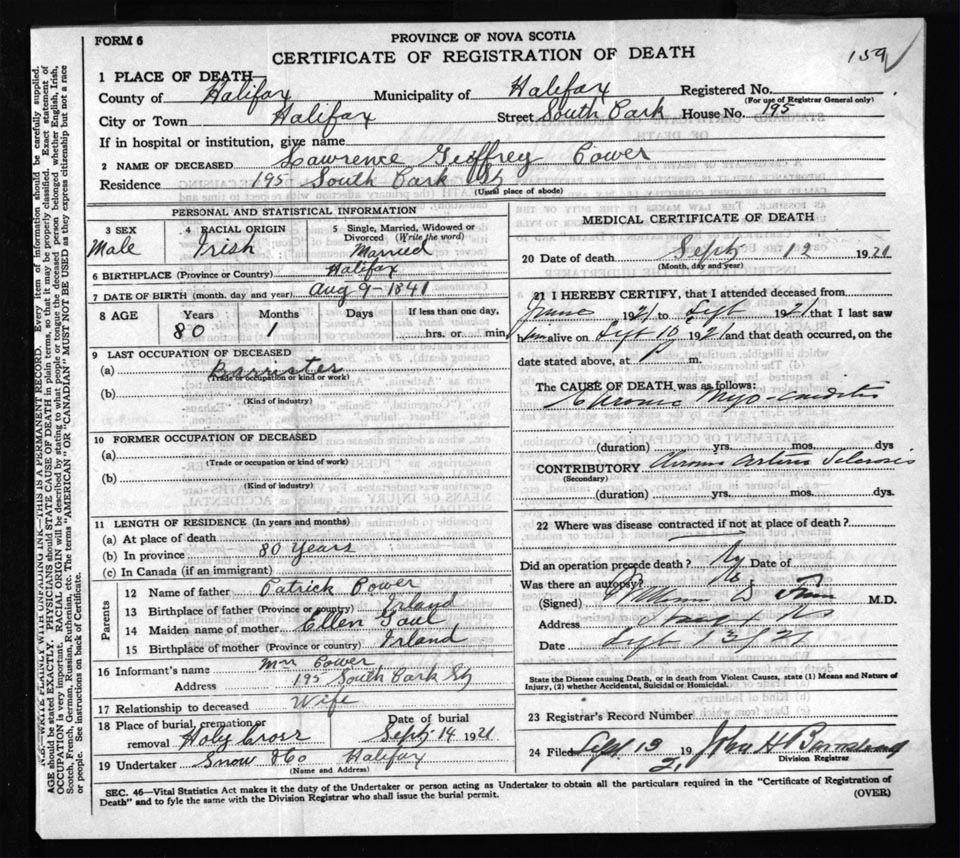 FORM 6
PROVINCE OF NOVA SCOTIA
CERTIFICATE OF REGISTRATION OF DEATH
159
1 PLACE OF DEATH—
County of Halifax Municipality of Halifax Registered No.
(For use of Registrar General only)
City or Town Halifax Street South Park House No. 195
If in hospital or institution, give name
2 NAME OF DECEASED Lawrence Geoffrey Power
Residence 195 South Park St
(Usual place of abode)
PERSONAL AND STATISTICAL INFORMATION
3 SEX Male
4 RACIAL ORIGIN Irish
5 Single, Married, Widowed or Divorced (Write the word) Married
6 BIRTHPLACE (Province or Country) Halifax
7 DATE OF BIRTH (month, day and year) Aug 9-1841
8 AGE Years Months Days If less than one day,
80 1 hrs. or min.
9 LAST OCCUPATION OF DECEASED
(a) Barrister
(Trade or occupation or kind or work)
(b)
(Kind of industry)
10 FORMER OCCUPATION OF DECEASED
(a)
(Trade or occupation or kind of work)
(b)
(Kind of industry)
11 LENGTH OF RESIDENCE (In years and months)
(a) At place of death
(b) In province 80 Years
(c) In Canada (if an immigrant)
Parents
12 Name of father Patrick Power
13 Birthplace of father (Province or country) Irland
14 Maiden name of mother Ellen Gaul
15 Birthplace of mother (Province or country) Irland
16 Informant's name Mrs Power
Address 195 South Park St
17 Relationship to deceased Wife
18 Place of burial, cremation or removal Holy Cross
Date of burial Sept 14 1921
19 Undertaker Snow &Co Halifax
(Name and Address)
MEDICAL CERTIFICATE OF DEATH
20 Date of death Sept 12 1921
(Month, day and year)
21 I HEREBY CERTIFY, that I attended deceased from
June 1921 to Sept 1921 that I last saw
him alive on Sept 10 1921 and that death occurred, on
date stated above, at P m.
The CAUSE OF DEATH was as follows:
Chronic Myo-carditis
(duration) yrs. mos. dys
CONTRIBUTORY Chronic Arterio Sclerosis
(Secondary)
(duration) yrs. mos. dys.
22 Where was disease contracted if not at place of death?
Did an operation precede death? No Date of
Was there an autopsy? No
(Signed) M.D.
Address
Date Sept 13/21
State the Disease causing Death, or in death from Violent Causes, state (1) Means and Nature of
Injury, (2) whether Accidental, Suicidal or Homicidal.
23 Registrar's Record Number
24 Filed Sept 13 1921 John H
Division Registrar
SEC. 46—Vital Statistics Act makes it the duty of the Undertaker or person acting as Undertaker to obtain all the particulars required in the "Certificate of Registration of
Death" and to fyle the same with the Division Registrar who shall issue the burial permit.
(OVER)
N.B.—WRITE PLAINLY WITH UNFADING INK—THIS IS A PERMANENT RECORD. Every item of information should be carefully supplied.
AGE should be stated EXACTLY. PHYSICIANS should STATE CAUSE OF DEATH in plain terms, so that it may be properly classified. Exact statement of
OCCUPATION is very important. RACIAL ORIGIN will be described by stating to what people or tongue the deceased person belonged whether English, Irish,
Scotch, French, German, Russian, Ruthenian, etc. The terms "AMERICAN" OR "CANADIAN" MUST NOT BE USED as they express citizenship but not a race
or people. See instructions on back of Certificate.